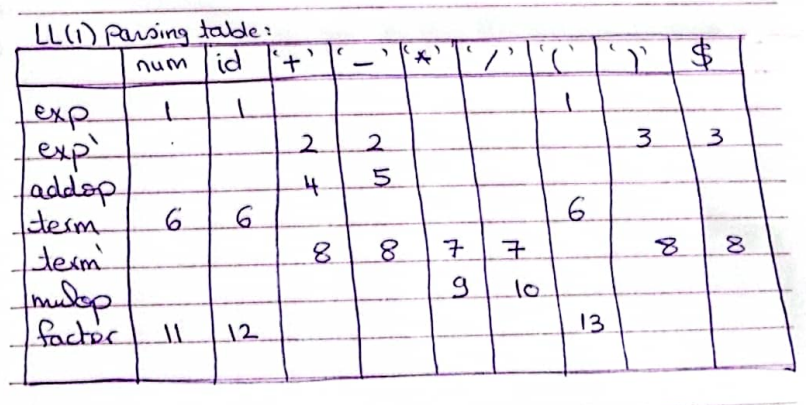 LL(1) Parsing table:
num id '+' '-' '*' '/' '(' ')' $
exp 1 1 1
exp' 2 2 3 3
addop 4 5
term 6 6 6
term' 8 8 7 7 8 8
mulop 9 10
factor 11 12 13